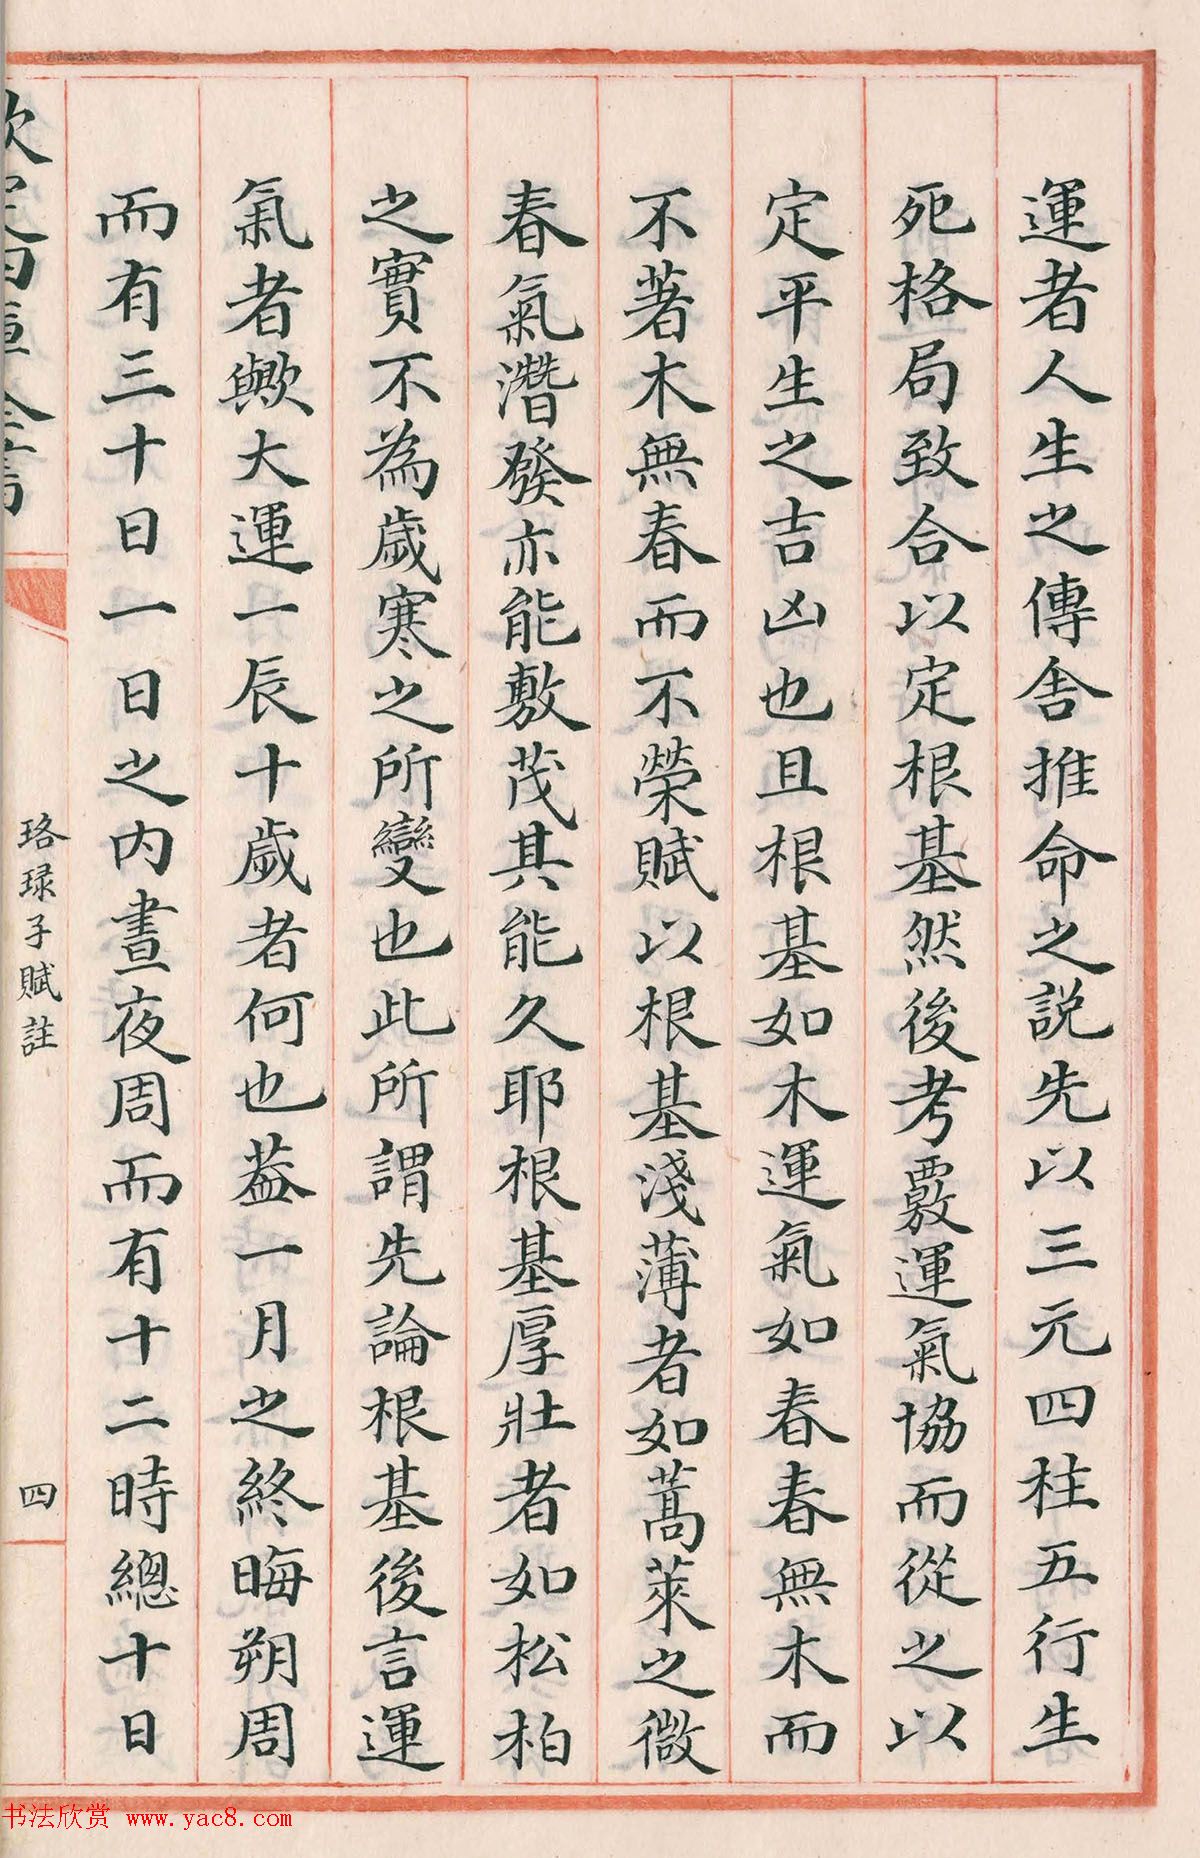 運者人生之傳舍推命之説先以三元四柱五行生
死格局致合以定根基然後考覈運氣協而從之以
定平生之吉凶也且根基如木運氣如春春無木而
不著木無春而不榮賦以根基淺薄者如蒿萊之微
春氣潛發亦能敷茂其能久耶根基厚壯者如松柏
之實不為歲寒之所變也此所謂先論根基後言運
氣者歟大運一辰十歲者何也葢一月之終晦朔周
而有三十日一日之内晝夜周而有十二時總十日
欽定四庫全書
珞琭子賦註
四
书法欣赏 www.yac8.com